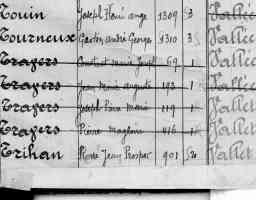 Touin Joseph René ange 1309 3 Vallée
Tourneux Gaston André Georges 1310 3 Vallet
Trazers Joseph 69 1 Vallet
Trazers Jean Marie auguste 193 1 Vallet
Trazers Joseph Marie 119 1 Vallet
Trazers Pierre 416 1 Vallet
Trihan Pierre Jean Prosper 901 Vallet